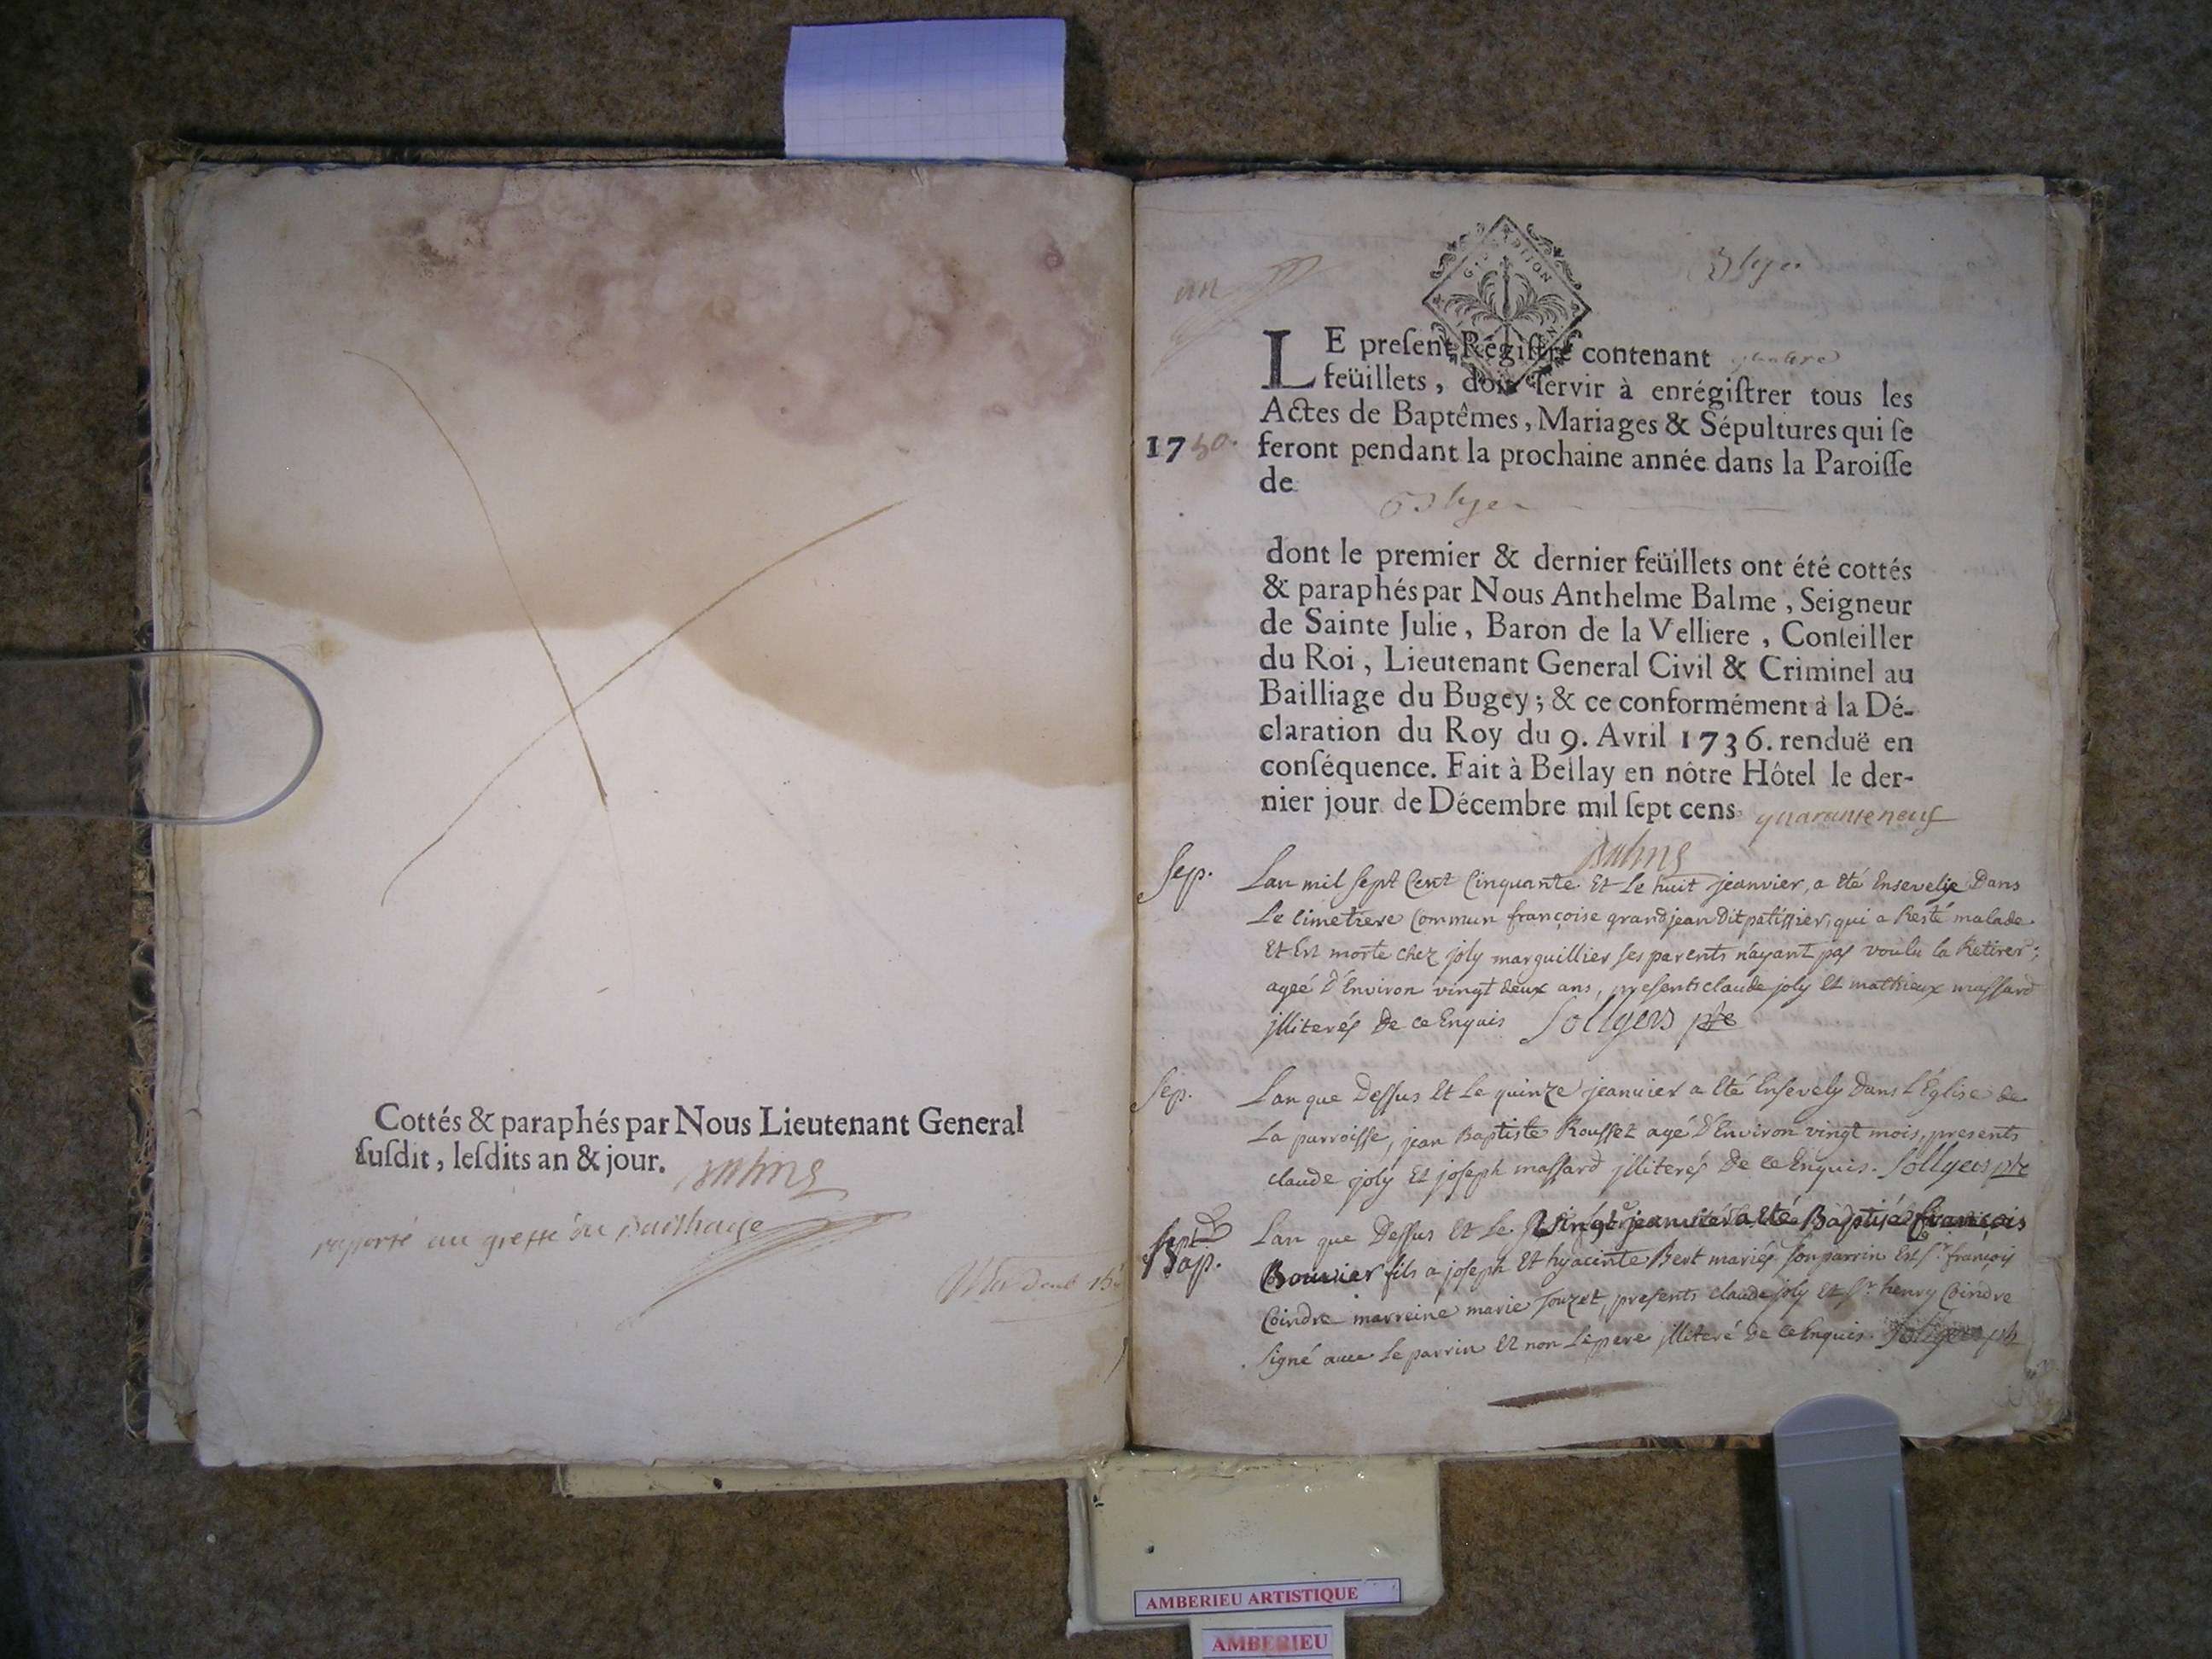 Cottés & paraphés par Nous Lieutenant General
susdit, lesdits an & jour.
raporté au greffe du Bailliage
un
G. DITION
LE preſent Régiſtre contenant
feüillets, doit ſervir à enrégiſtrer tous les
Actes de Baptêmes, Mariages & Sépultures qui ſe
1750. feront pendant la prochaine année dans la Paroiſſe
de
dont le premier & dernier feüillets ont été cottés
& paraphés par Nous Anthelme Balme, Seigneur
de Sainte Julie, Baron de la Velliere, Conſeiller
du Roi, Lieutenant General Civil & Criminel au
Bailliage du Bugey; & ce conformément à la Dé-
claration du Roy du 9. Avril 1736. renduë en
conſéquence. Fait à Bellay en nôtre Hôtel le der-
nier jour de Décembre mil ſept cens quarante neuf
Balme
Sep. Lan mil sept Cent Cinquante Et Le huit jeanvier, a été Ensevelie Dans
Le cimetiere Commun françoise grandjean Dit patissier, qui a Resté malade
Et Est morte chez joly marguillier ses parents n'ayant pas voulu la Retirer;
ageé D'Environ vingt deux ans, presents claude joly Et mathieux massard
jlliterés De ce Enquis Sollyers ptre
Sep. Lan que Dessus Et Le quinze jeanvier a Eté Ensevely Dans L'Eglise de
La parroisse, jean Baptiste Roussez agé D'Environ vingt mois, presents
claude joly Et joseph massard jlliterés De ce Enquis. Sollyers ptre
Bap. Lan que Dessus Et Le vingt jeanvier a Eté Baptisé françois
Bouvier fils a joseph Et hyacinte Bert mariés. Son parrin Est Sr françois
Coindre marreine marie Jouzet, presents claude joly Et Sr henry Coindre
Signé avec Le parrin Et non Le pere jlliteré De ce Enquis. Sollyers ptre
AMBERIEU ARTISTIQUE
AMBERIEU